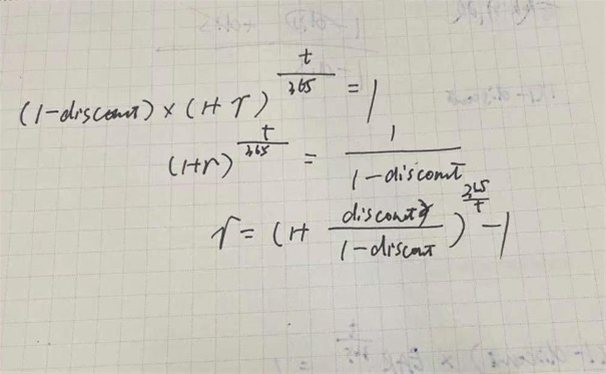 (1-discount) × (1+r)^(t/365) = 1
(1+r)^(t/365) = 1/(1-discount)
r = (1+ discount/(1-discount))^(365/t) -1